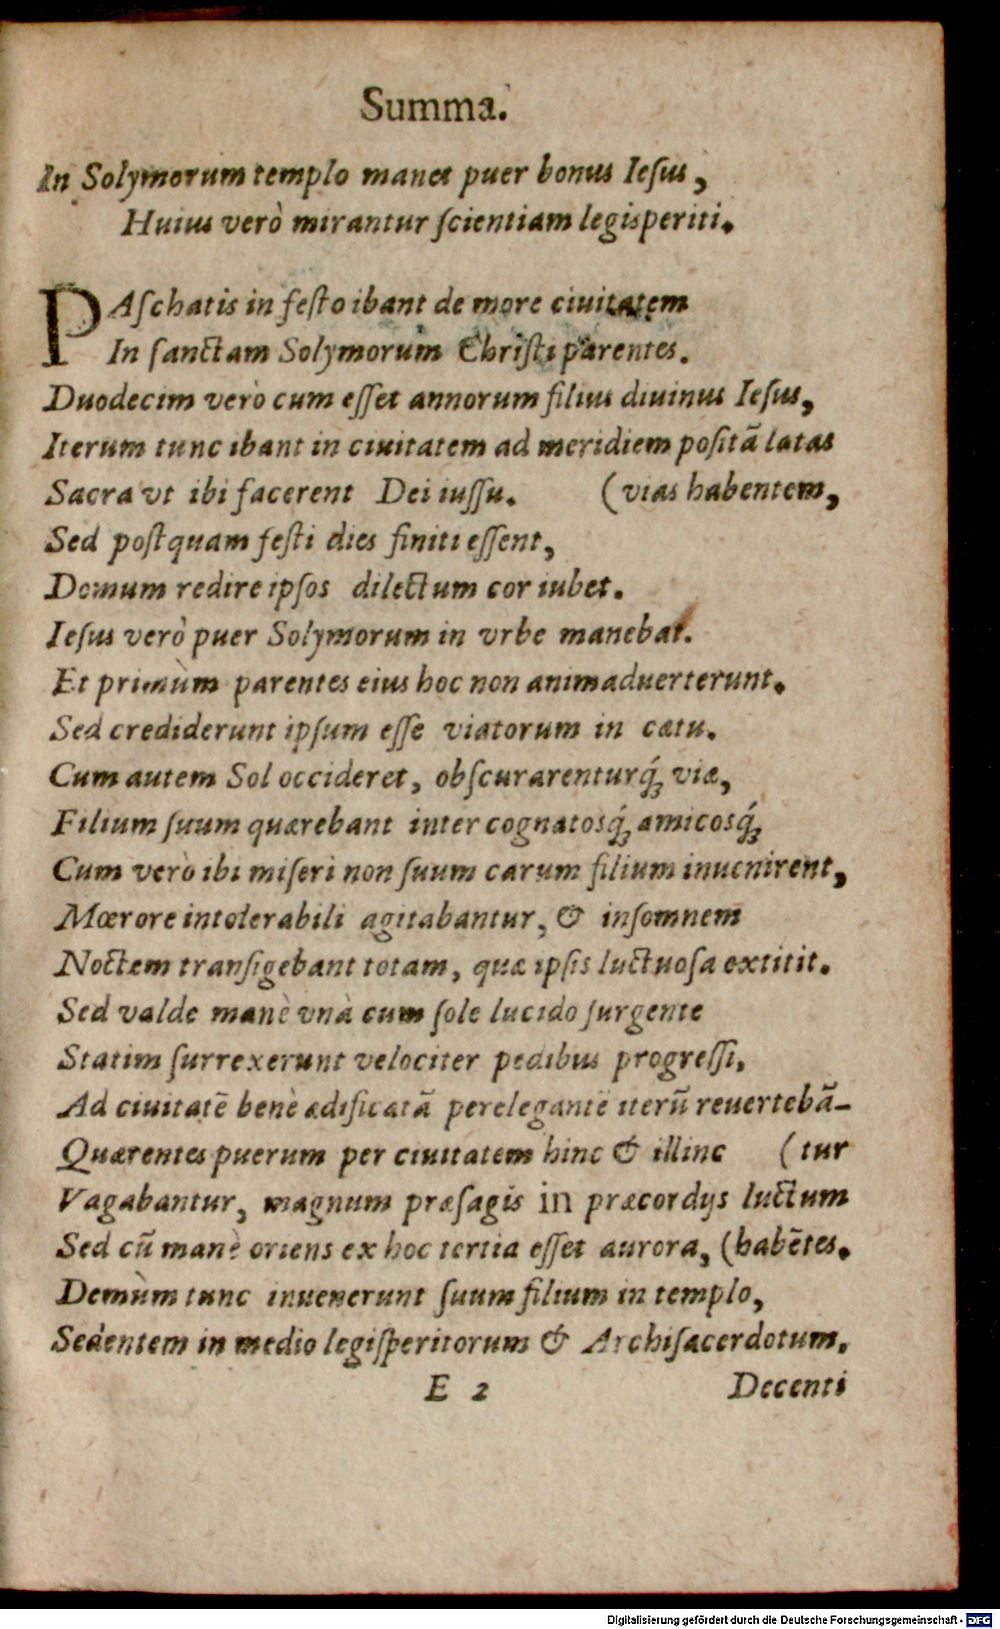 Summa.
In Solymorum templo manet puer bonus Iesus,
Huius verò mirantur scientiam legisperiti.
PAschatis in festo ibant de more ciuitatem
In sanctam Solymorum Christi parentes.
Duodecim verò cum esset annorum filius diuinus Iesus,
Iterum tunc ibant in ciuitatem ad meridiem positā latas
Sacra vt ibi facerent Dei iussu. (vias habentem,
Sed postquam festi dies finiti essent,
Domum redire ipsos dilectum cor iubet.
Iesus verò puer Solymorum in vrbe manebat.
Et primùm parentes eius hoc non animaduerterunt.
Sed crediderunt ipsum esse viatorum in cætu.
Cum autem Sol occideret, obscurarenturq́; viæ,
Filium suum quærebant inter cognatosq́; amicosq́;
Cum verò ibi miseri non suum carum filium inuenirent,
Mœrore intolerabili agitabantur, & insomnem
Noctem transigebant totam, quæ ipsis luctuosa extitit.
Sed valde manè vnà cum sole lucido surgente
Statim surrexerunt velociter pedibus progressi,
Ad ciuitatē benè ædificatā perelegantē iterū reuertebā-
Quærentes puerum per ciuitatem hinc & illinc (tur
Vagabantur, magnum præsagis in præcordijs luctum
Sed cū manè oriens ex hoc tertia esset aurora, (habētes.
Demùm tunc inuenerunt suum filium in templo,
Sedentem in medio legisperitorum & Archisacerdotum.
E 2 Decenti
Digitalisierung gefördert durch die Deutsche Forschungsgemeinschaft - DFG